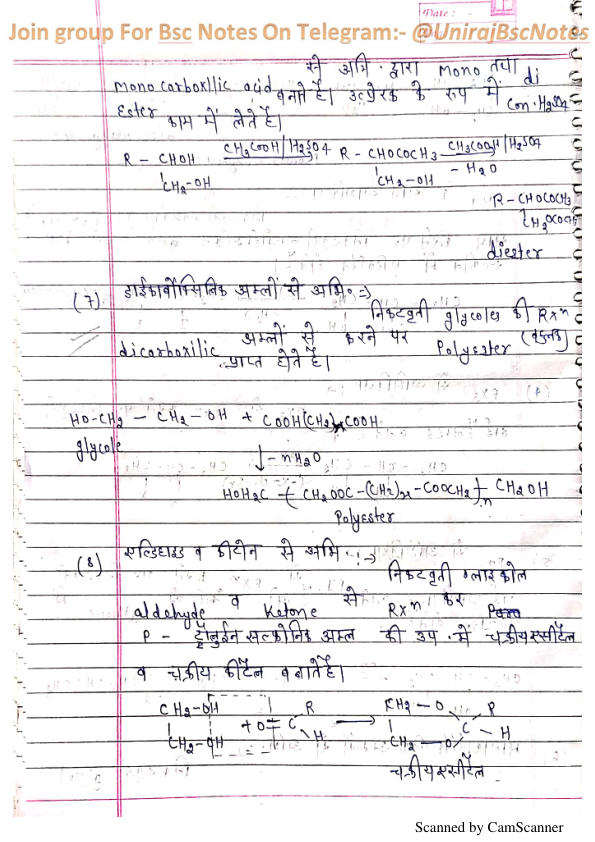 Date :-
Join group For Bsc Notes On Telegram:- @UnirajBscNotes
से अभि. द्वारा mono तथा di
mono carboxllic acid
Ester बनाते है। उत्प्रेरक के रूप में con. H2SO4
काम में लेते है।
R - CHOH CH3COOH/H2SO4 R - CHOCOCH3 CH3COOH/H2SO4
CH2-OH CH2-OH - H2O
R-CHOCOCH3
CH2OCOCH3
diester
(7) डाईकार्बोक्सिलिक अम्लों से अभि. :⇒
निकटवृती glycoles की Rxn
dicarboxilic अम्लों से करने पर Polyester (बहुलक)
प्राप्त होते है।
HO-CH2 - CH2-OH + COOH(CH2)xCOOH
glycole
↓ -nH2O
HOH2C -(CH2OOC-(CH2)x-COOCH2)n CH2OH
Polyester
(8) एल्डिहाइड व कीटोन से अभि. :→
निकटवृती ग्लाइकोल
aldehyde व ketone से Rxn कर
P - टॉलुईन सल्फोनिक अम्ल की उप. में चक्रीय एसीटैल
व चक्रीय कीटैल बनाते है।
CH2-OH R CH2-O R
+ O=C → C
CH2-OH H CH2-O H
चक्रीय एसीटैल
Scanned by CamScanner